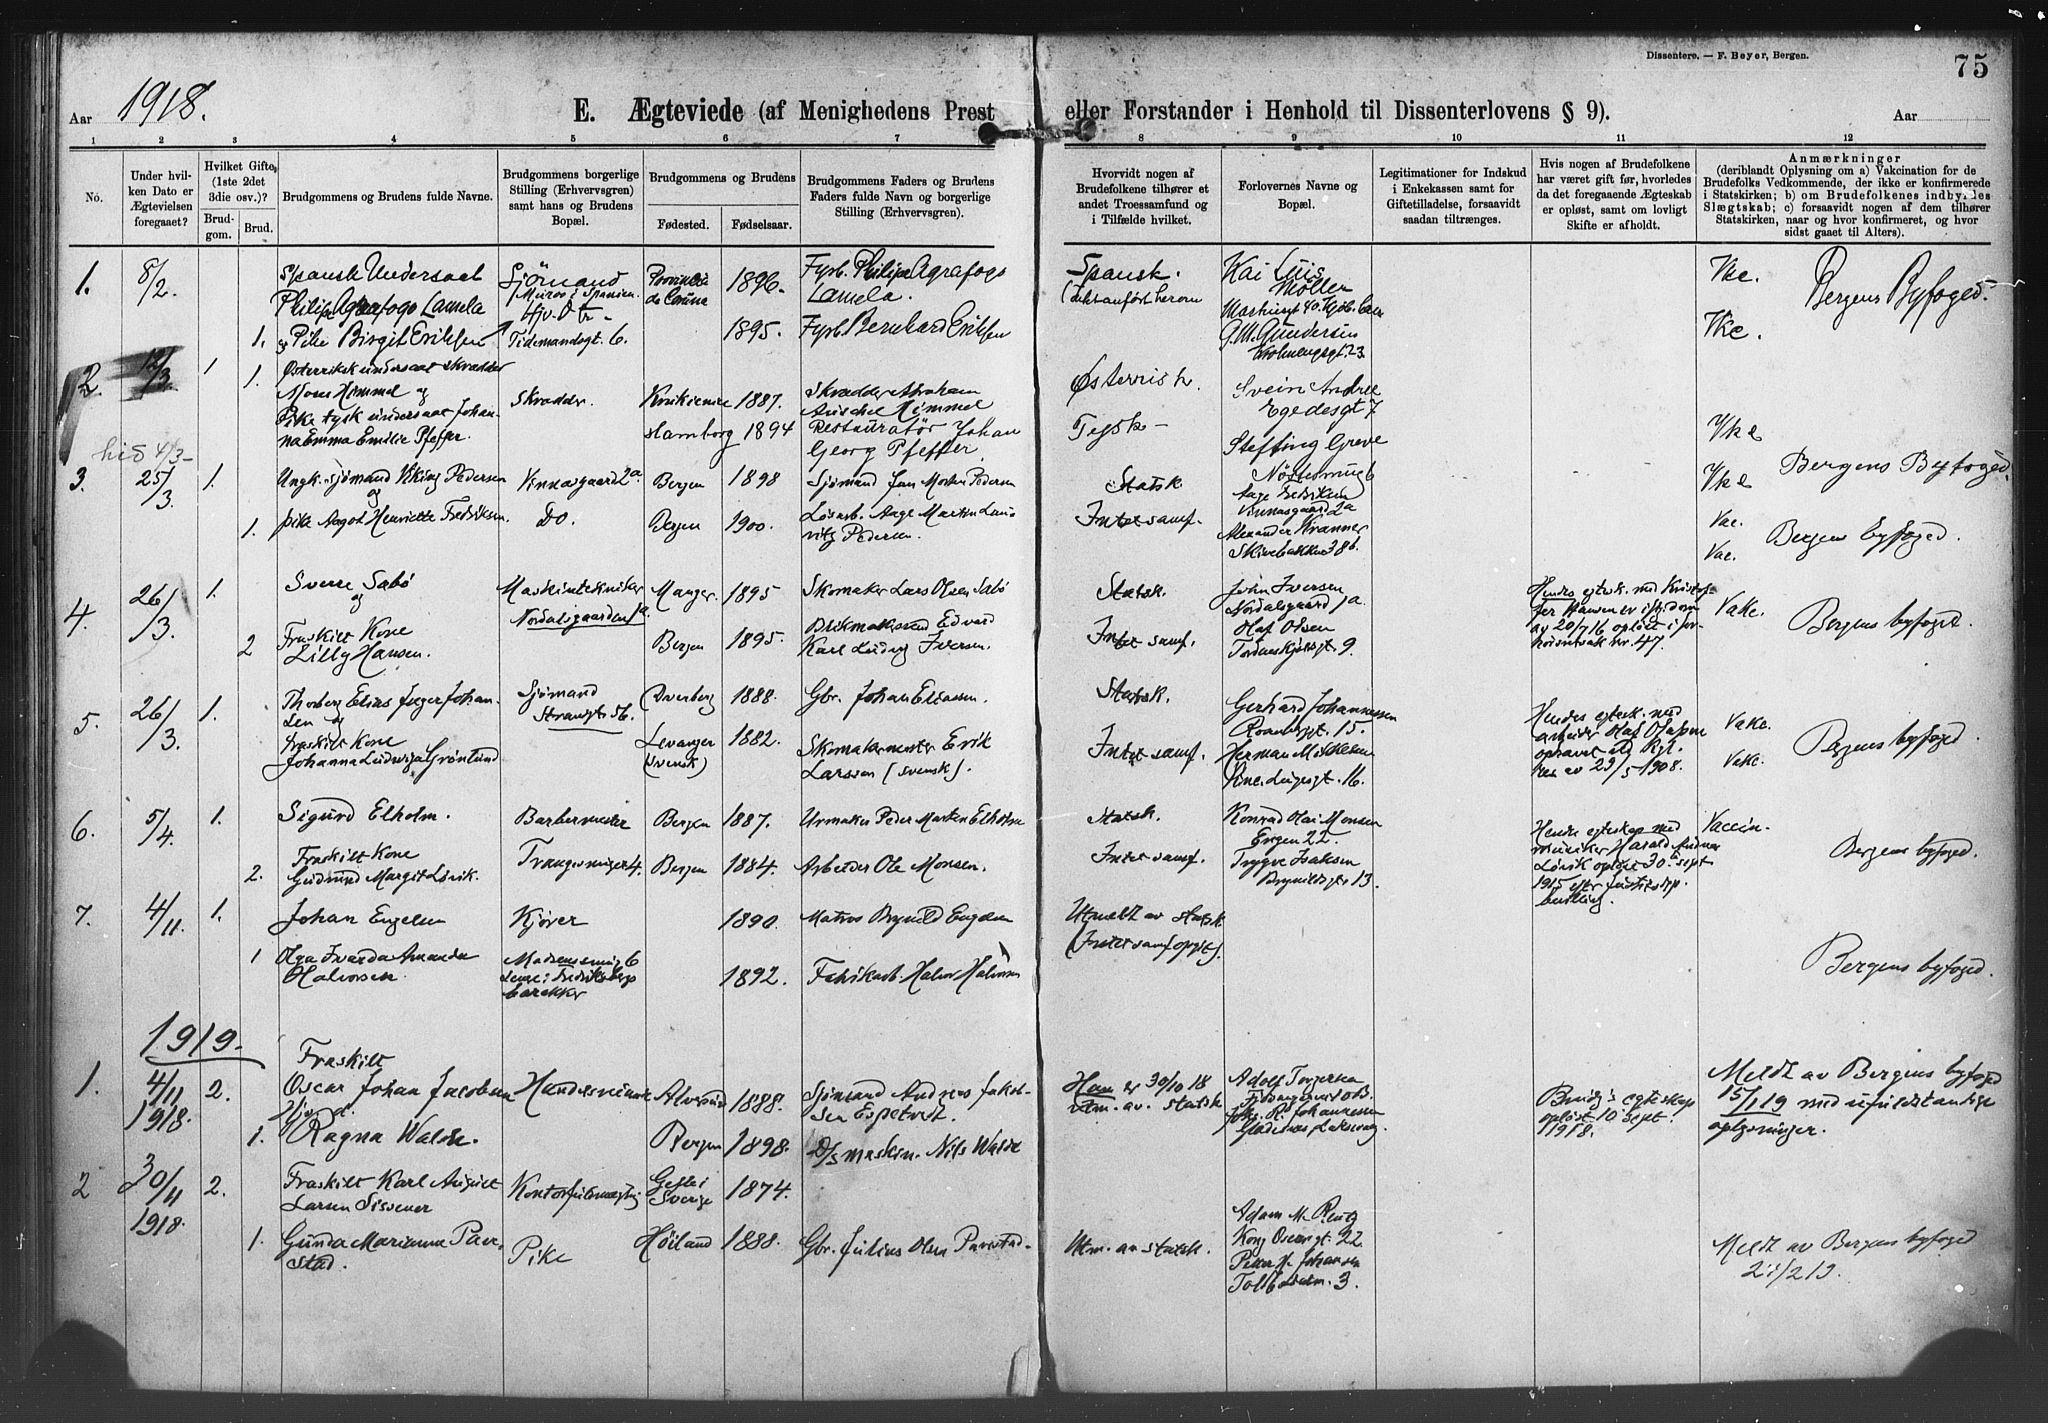 Dissentere. — F. Beyer, Bergen.
75
Aar 1918.
E. Ægteviede (af Menighedens Prest eller Forstander i Henhold til Dissenterlovens § 9).
Aar
1 2 3 4 5 6 7 8 9 10 11 12
No.
Under hvil-
ken Dato er
Ægtevielsen
foregaaet?
Hvilket Gifte
(1ste 2det
3die osv.)?
Brud-
gom.
Brud.
Brudgommens og Brudens fulde Navne.
Brudgommens borgerlige
Stilling (Erhvervsgren)
samt hans og Brudens
Bopæl.
Brudgommens og Brudens
Fødested.
Fødselsaar.
Brudgommens Faders og Brudens
Faders fulde Navn og borgerlige
Stilling (Erhvervsgren).
Hvorvidt nogen af
Brudefolkene tilhører et
andet Troessamfund og
i Tilfælde hvilket.
Forlovernes Navne og
Bopæl.
Legitimationer for Indskud
i Enkekassen samt for
Giftetilladelse, forsaavidt
saadan tiltrænges.
Hvis nogen af Brudefolkene
har været gift før, hvorledes
da det foregaaende Ægteskab
er opløst, samt om lovligt
Skifte er afholdt.
Anmærkninger
(deriblandt Oplysning om a) Vakcination for de
Brudefolks Vedkommende, der ikke er konfirmerede
i Statskirken; b) om Brudefolkenes indbyrdes
Slægtskab; c) forsaavidt nogen af dem tilhører
Statskirken, naar og hvor konfirmeret, og hvor
sidst gaaet til Alters).
1. 8/2.
Spansk Undersaat
Philip Agrafogo Lamela
1. og Pike Birgit Eriksen
Sjömand
Muros i Spanien
Tidemandsgt. 6.
1896.
1895.
Fyrb. Philip Agrafogo
Lamela.
Fyrb. Bernhard Eriksen
Spansk.
Kai Luis
Möller
G. M. Gundersen
Vke.
Vke.
Bergens Byfoged.
2. 12/3. 1 1.
Østerriksk undersaat skradder
Himmel og
Pike tysk undersaat Johan-
na Emma Emilie Pfeffer.
Skradder.
1887.
Hamborg 1894
Skradder Abraham
Himmel
Restauratør Johan
Georg Pfeffer.
Østerrisk.
Tysk —
Svein Andree
Egedesgt 7
Steffing Greve
Vke
Vke
Bergens Byfoged.
4/3-
3. 25/3 1.
Ungk. sjømand Viking Pedersen
og
1. pike Aagot Henriette Fredriksen.
Vinnasgaard 2a.
Do.
Bergen 1898
Bergen 1900.
Sjömand Jan Morten Pedersen
Løsarb. Aage Martin Lau-
ritz Pedersen.
Statsk
Intet samf.
Aage Fredriksen
Vinnasgaard 2a
Alexander Kranner
Skivebakken 38b.
Vac.
Vac.
Bergens byfoged.
4. 26/3. 1.
Sverre Sabø
og
2 Fraskilt Kone
Lilly Hansen.
Maskintekniker
Nordalsgaarden 1a.
Manger. 1895
Bergen 1895.
Skomaker Lars Olsen Sabø
Blikmakersvend Edvard
Karl Ludvig Iversen.
Statsk.
Intet samf.
John Iversen
Nordalsgaard 1a.
Olaf Olsen
Tordenskjoldsgt. 9.
Hendes egtesk. med Kristof-
fer Hansen er ifl. dom
av 20/7 16 opløst i for-
nr. 47.
Vake.
Bergens byfoged.
5. 26/3. 1.
Thorberg Elias Inger Johan-
sen og
fraskilt Kone
Johanna Ludviga Grönlund
Sjømand
Strandgt 56.
1888.
Levanger 1882.
(svensk)
Gbr. Johan Eliassen.
Skomakermester Erik
Larssen (svensk).
Statsk.
Intet samf.
Gerhard Johannessen
15.
Herman Mikkelsen
16.
Hendes egtesk. med
arbeider Olaf Olafsen
ophævet ved Kgl.
Res av 29/5 1908.
Vake.
Vake.
Bergens byfoged.
6. 5/4. 1.
Sigurd Elholm.
Fraskilt Kone
2. Gudrund Margit Lövik.
Barbermester
4.
Bergen 1887.
Bergen 1884.
Urmaker Peder Martin Elholm
Arbeider Ole Monsen.
Statsk.
Intet samf.
Konrad Olai Monsen
Engen 22.
Trygve Isaksen
Brynildsgt 13.
Hendes egteskap med
musiker Harald Andreas
Lövik opløst 30 sept
1915 efter justitsdep.
bevilling.
Vaccin.
Bergens byfoged.
7. 4/11. 1.
Johan Engelsen
1 Olga Ivarda Amanda
Halvorsen
Kjörer
6
barakker
1890.
1892.
Matros Brynild Engelsen
Fabrikarb. Halvor Halvorsen
Utmeldt av statsk
(Intet samf opgit).
Bergens byfoged.
1919.
1. 4/11 1918. 2.
Fraskilt
Oscar Johan Jacobsen
1. Ragna Walde.
1888.
Bergen 1898.
Sjömand Andreas Jakob-
sen Espetveit.
D/s maskin. Nils Walde
Ham er 30/10 18
utm. av. statsk
Adolf Torgersen
Johs. R. Johannessen
Brudg's egteskap
opløst 10 sept.
1918.
Meldt av Bergens byfoged
15/1 19 med ufuldstendige
oplysninger.
2 30/11 1918. 2.
Fraskilt Karl August
Larsen Sissener
1. Gunda Marianne Paa-
stad.
Kontorfuldmægtig
Pike
Gefle i
Sverige 1874.
Höiland 1888.
Gbr. Julius Olsen
Utm. av statsk.
Adam M. Rentz
Kong Oscarsgt. 22
Peter M. Johansen
3.
Meldt av Bergens byfoged
21/2 19.